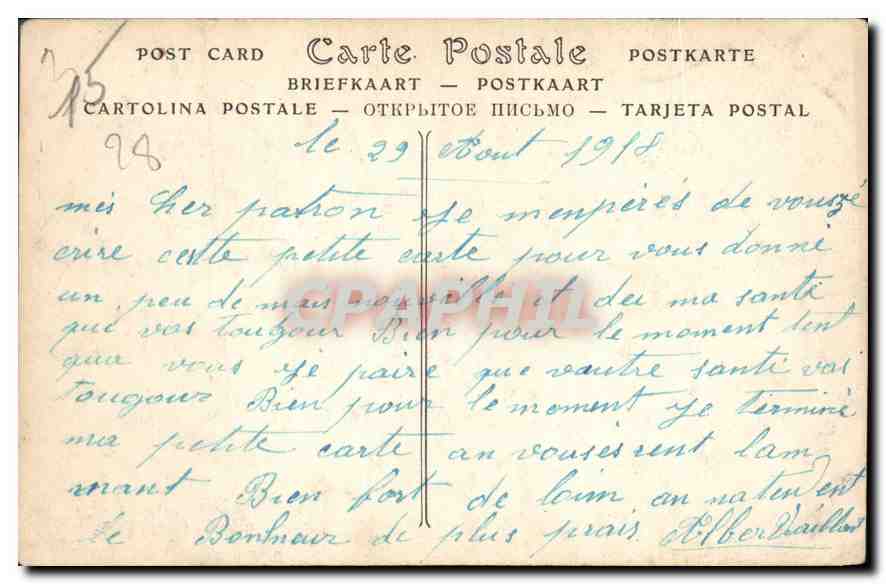 POST CARD Carte Postale POSTKARTE
BRIEFKAART — POSTKAART
CARTOLINA POSTALE — ОТКРЫТОЕ ПИСЬМО — TARJETA POSTAL
15
28
le 29 Aout 1918
mes her patron Je menpérés de vous zé
crire cette petite carte pour vous donné
un peu de mais nouville et deu ma santé
qui vas tougour Bien pour le moment tent
qua vous Je paire que vautre santi vas
tougour Bien pour le moment Je terminé
ma petite carte an vousésrent lam
mant Bien fort de loim an natendent
le Bonheur de plus prais Alber Vaillant
CPAPHIL